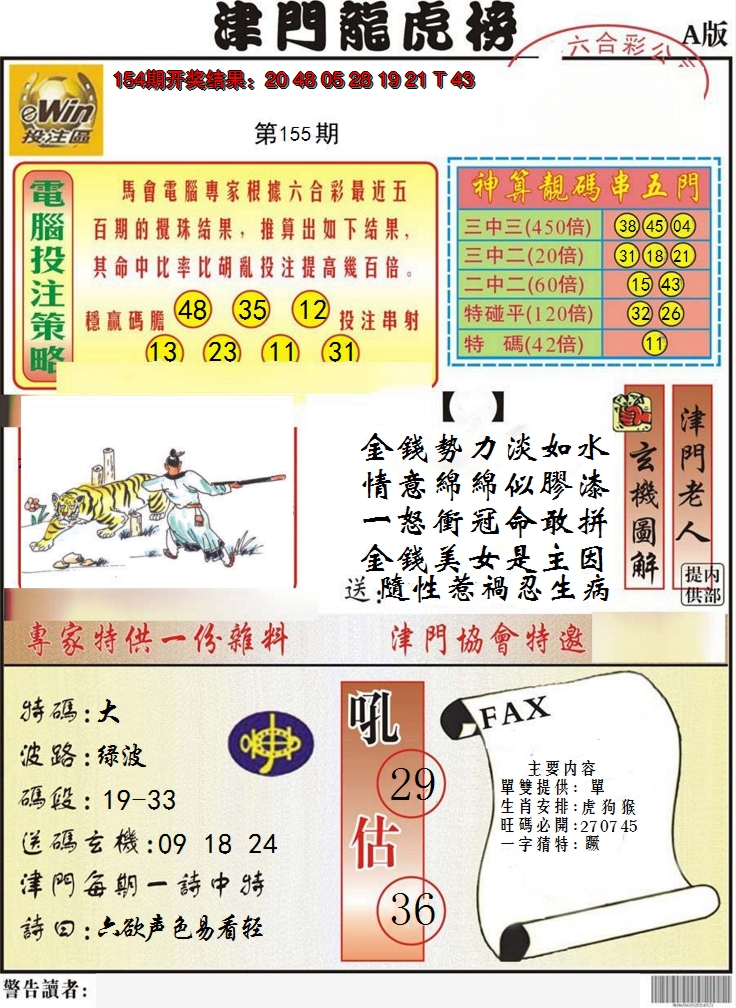 津門龍虎榜
A版
六合彩公
eWin
投注區
154期开奖结果：20 48 05 28 19 21 T 43
第155期
電腦投注策略
馬會電腦專家根據六合彩最近五
百期的攪珠结果，推算出如下结果，
其命中比率比胡亂投注提高幾百倍。
穩贏碼膽 48 35 12 投注串射
13 23 11 31
神算靚碼串五門
三中三(450倍) 38 45 04
三中二(20倍) 31 18 21
二中二(60倍) 15 43
特碰平(120倍) 32 26
特 碼(42倍) 11
【 】
金錢勢力淡如水
情意綿綿似膠漆
一怒衝冠命敢拼
金錢美女是主因
送:隨性惹禍忍生病
玄機圖解
津門老人
内部提供
專家特供一份雜料
津門協會特邀
特碼:大
波路:绿波
碼段:19-33
送碼玄機:09 18 24
津門每期一詩中特
詩曰:六欲声色易看轻
吼
29
估
36
FAX
主要内容
單雙提供：單
生肖安排:虎狗猴
旺碼必開:270745
一字猜特：蹶
警告讀者: